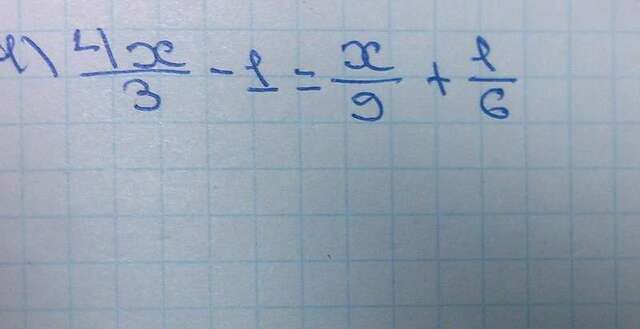 1) 4x/3 - 1 = x/9 + 1/6